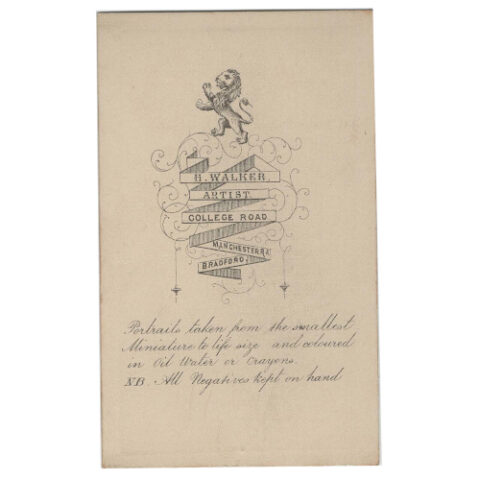 H. WALKER,
ARTIST.
COLLEGE ROAD.
MANCHESTER RD.
BRADFORD.
Portraits taken from the smallest
Miniature to life size and coloured
in Oil Water or Crayons.
NB. All Negatives kept on hand